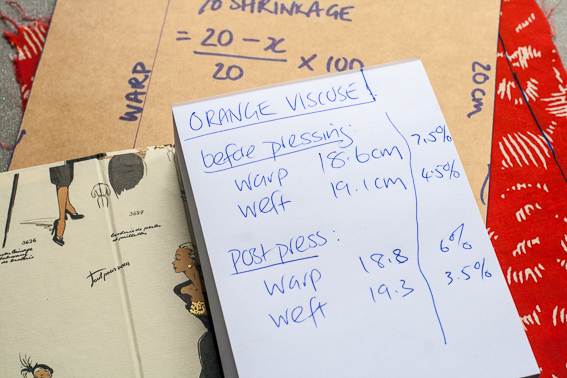 % SHRINKAGE
= 20 - x
20
x 100
WARP
20cm
ORANGE VISCOSE!
before pressing:
warp 18.6cm 7.5%
weft 19.1cm 4.5%
Post press:
warp 18.8 6%
weft 19.3 3.5%
3636
3677
Tout pour vous